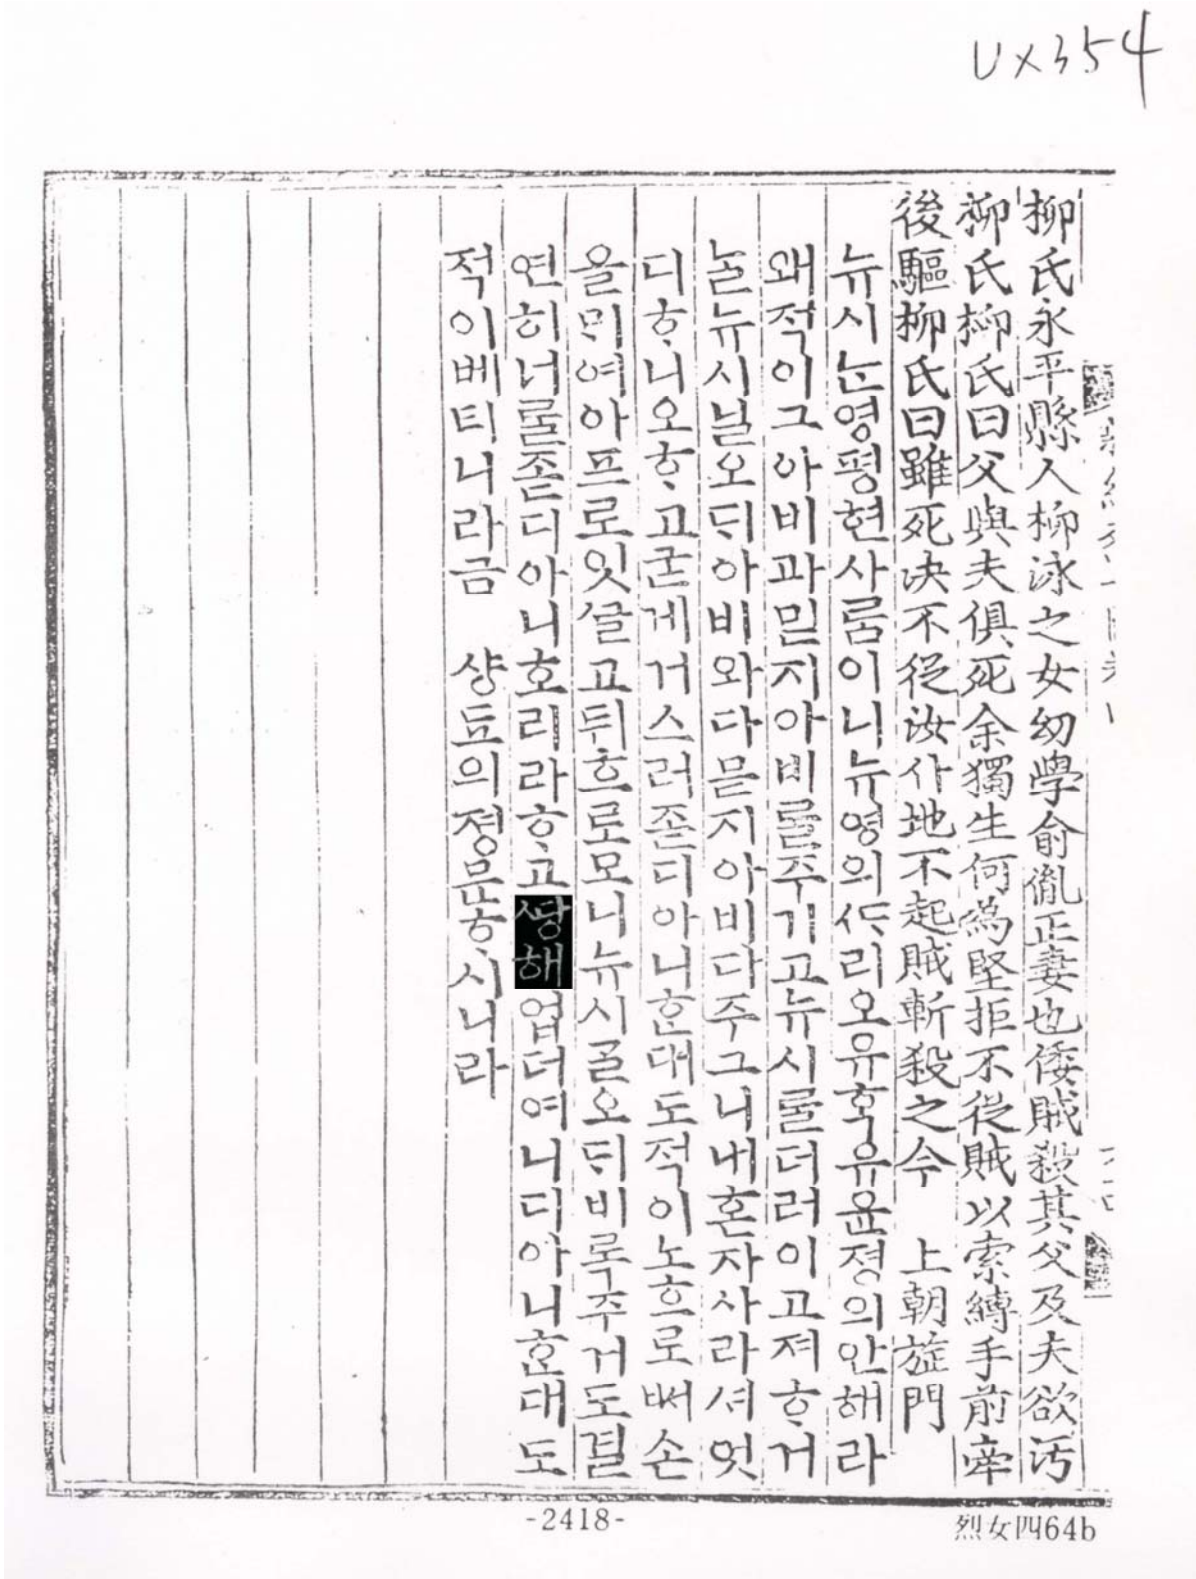 UX354
柳氏永平縣人柳泳之女幼學俞胤正妻也倭賊殺其父及夫欲污
柳氏柳氏曰父與夫俱死余獨生何為堅拒不從賊以索縛手前牽
後驅柳氏曰雖死決不從汝仆地不起賊斬殺之今 上朝旌門
뉴시ᄂᆞᆫ영평현사ᄅᆞᆷ이니뉴영의ᄯᆞ리오유ᄒᆞᆨ유윤졍의안해라
왜적이그아비과믿지아비ᄅᆞᆯ주기고뉴시ᄅᆞᆯ더러이고져ᄒᆞ거
ᄂᆞᆯ뉴시닐오ᄃᆡ아비와다믇지아비다주그니내혼자사라셔엇
디ᄒᆞ니오ᄒᆞ고굳게거스러졷디아니ᄒᆞᆫ대도적이노흐로ᄡᅥ손
올ᄆᆡ여아프로잇글고뒤흐로모니뉴시ᄀᆞᆯ오ᄃᆡ비록주거도결
연히너ᄅᆞᆯ졷디아니호리라ᄒᆞ고ᄯᅡᇰ해업더여니디아니ᄒᆞᆫ대도
적이베티니라금 샹됴의졍문ᄒᆞ시니라
-2418-
烈女四64b